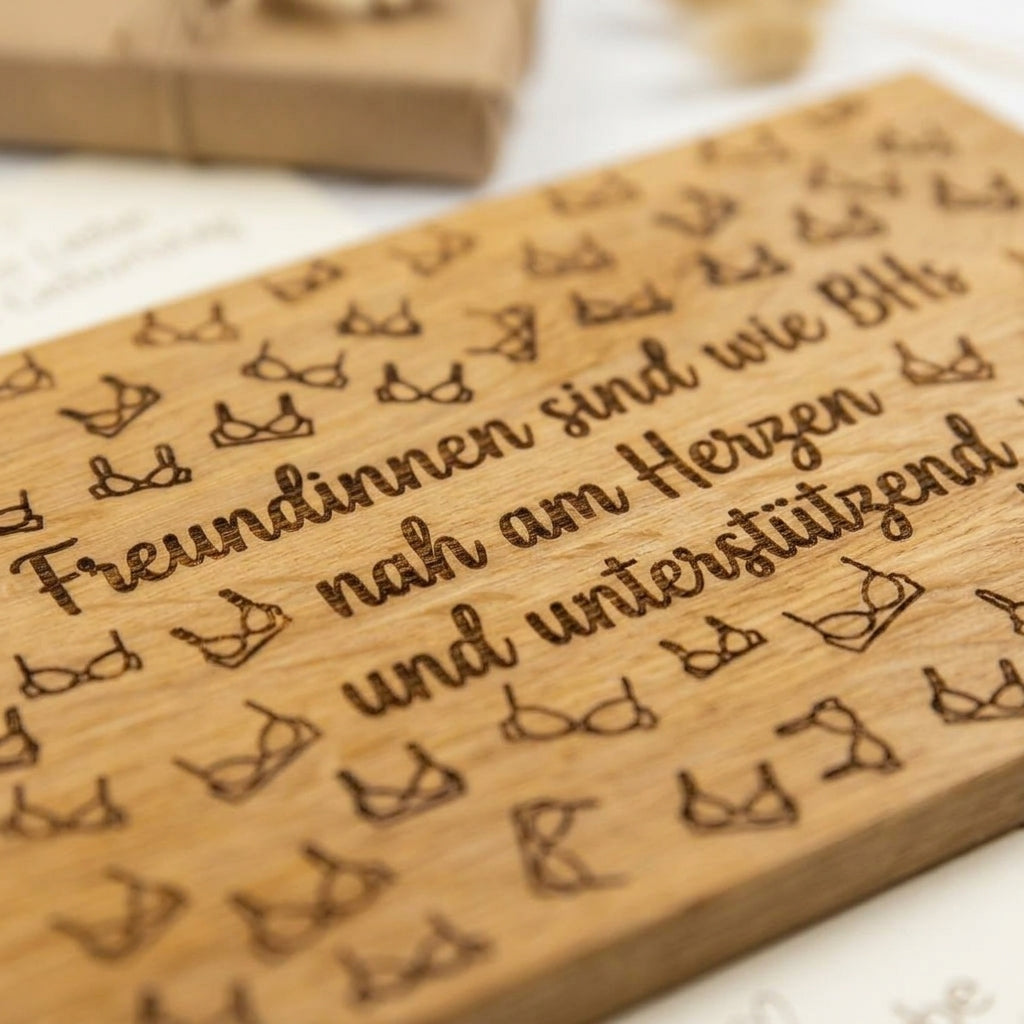 Freundinnen sind wie BHs
nah am Herzen
und unterstützend